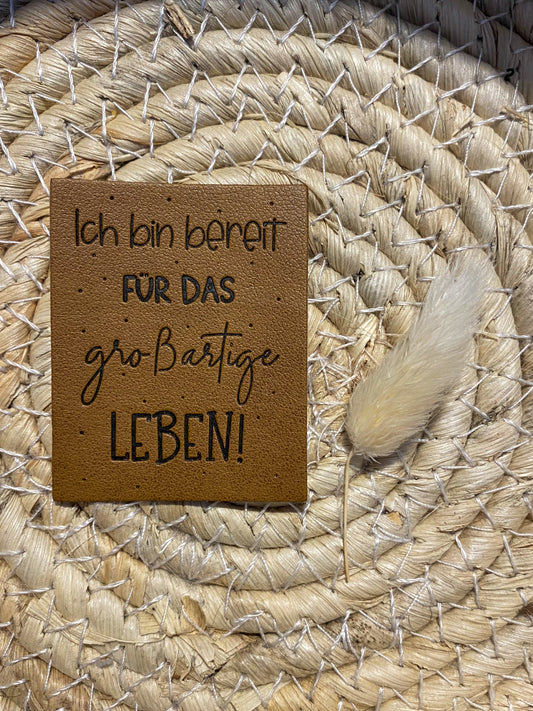 Ich bin bereit
FÜR DAS
großartige
LEBEN!